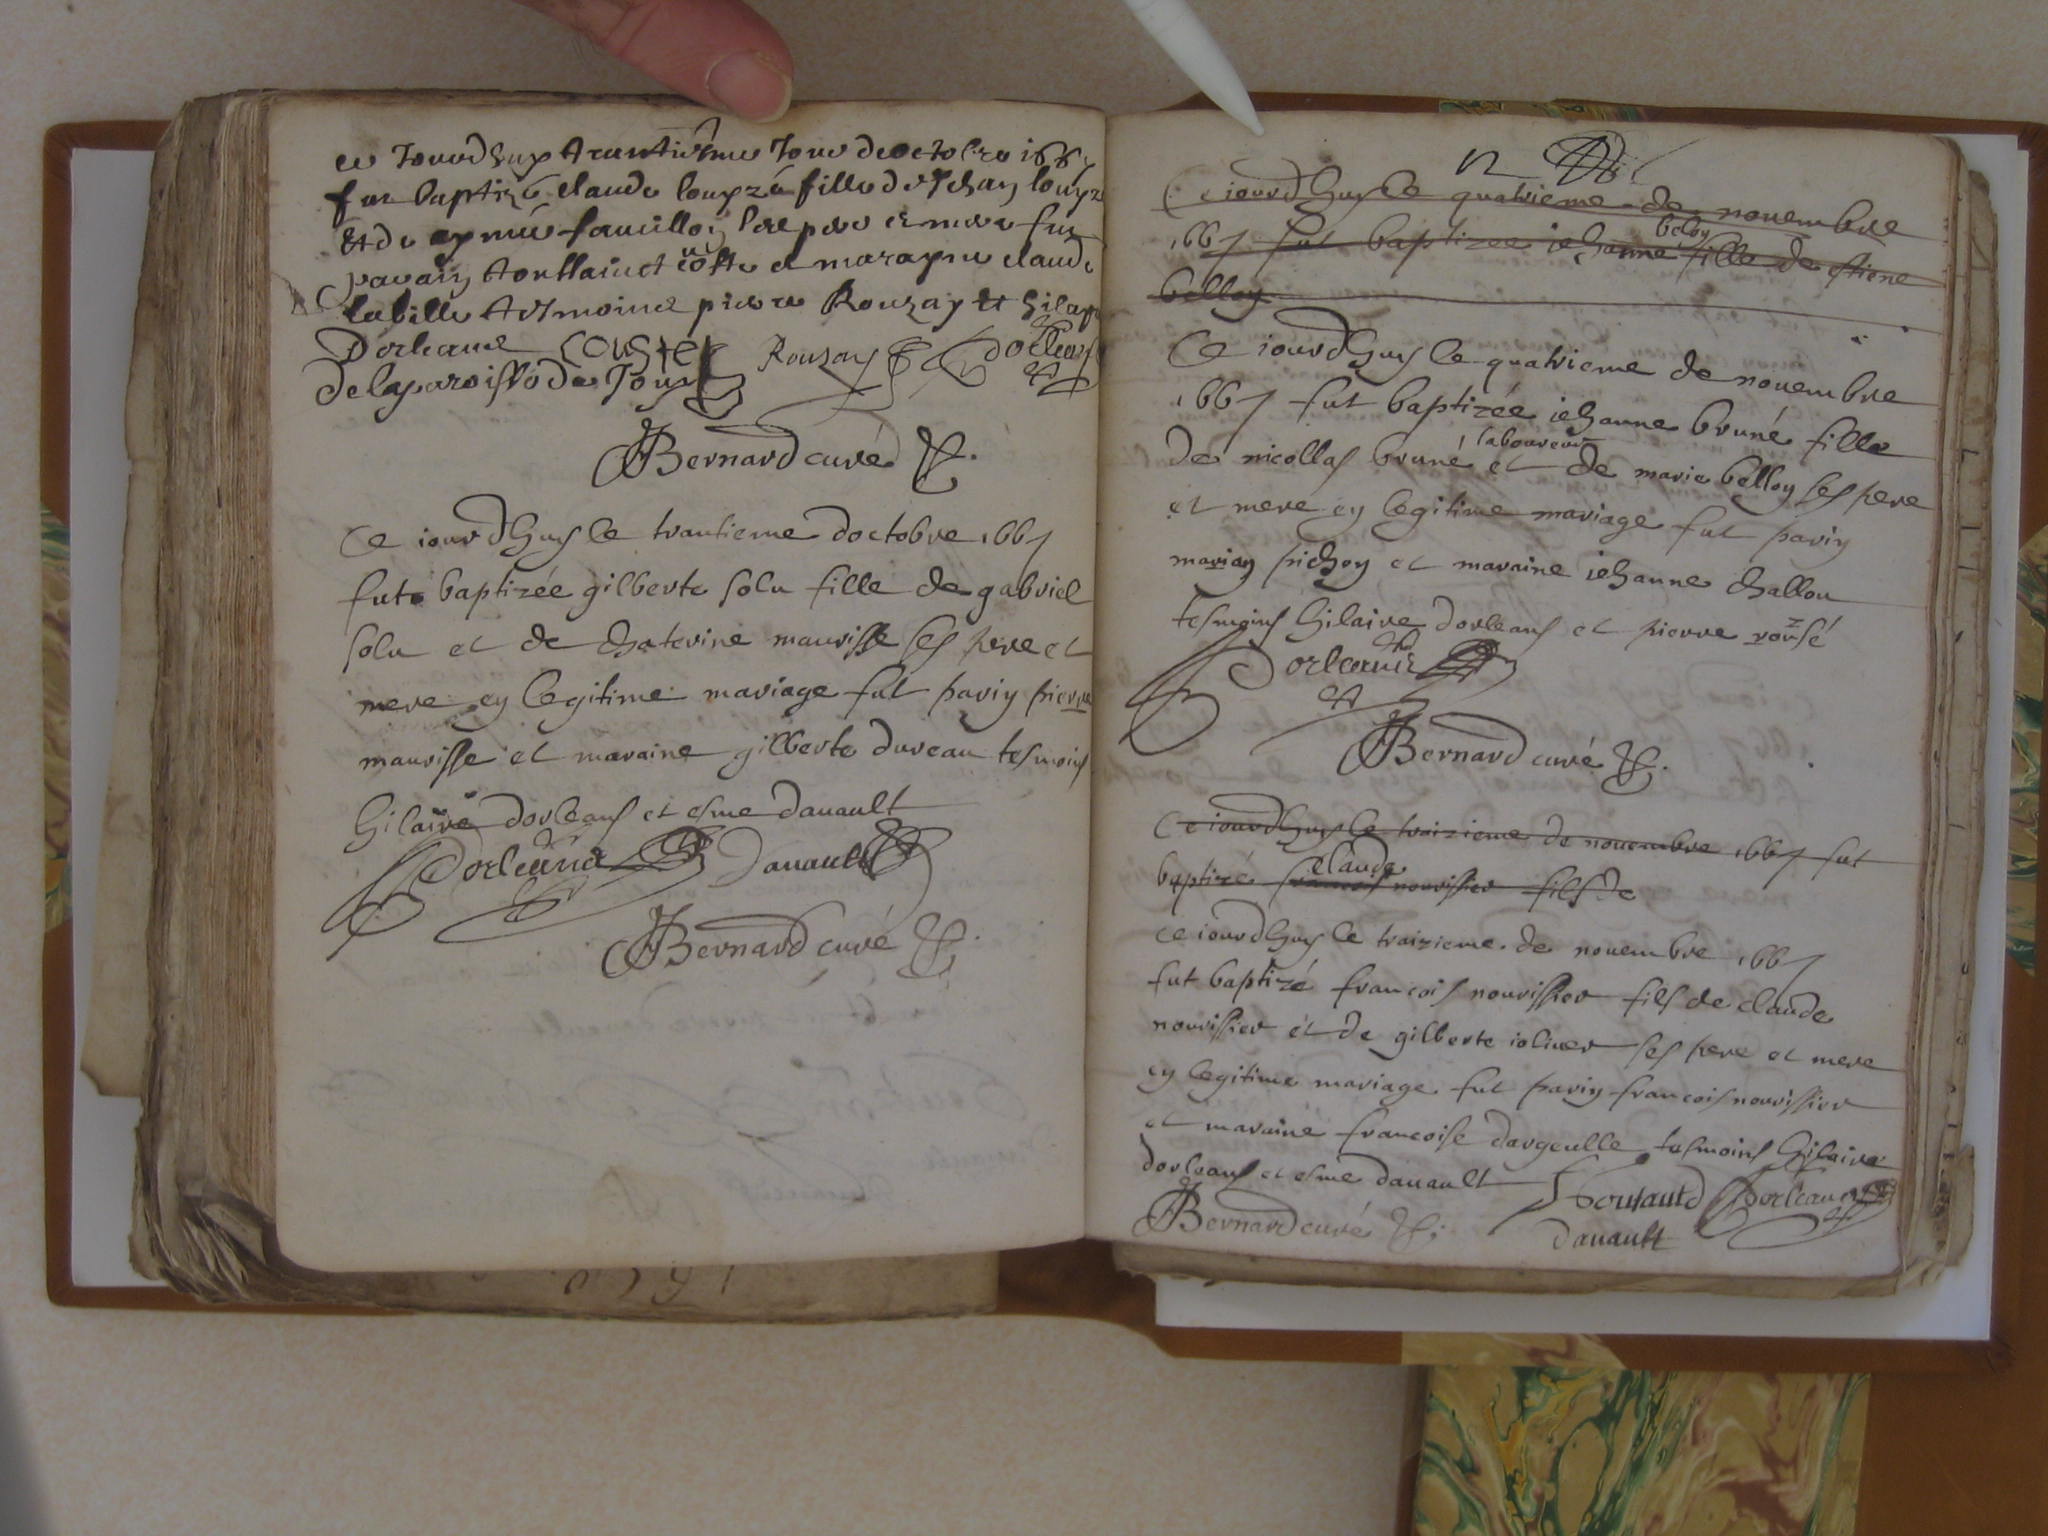 ce Jourdhuy trantiesme Jour doctobre 1667
fut baptizé claude louyzé fille de Jehan louyz
Et de

claude
labille tesmoins pierre Rouzay et hilayre
Dorleans COUSTE Rouzay dorleans
de la paroisse de Jouy
Bernard curé
Ce iourdhuy le trantieme doctobre 1667
fut baptizée gilberte solu fille de gabriel
solu et de chaterine maurisse ses pere et
mere en legitime mariage fut parin pierre
maurisse et maraine gilberte dureau tesmoins
hilaire dorleans et esme dauault
Dorleans Dauault
Bernard curé
12
Ce iourdhuy le quatrieme de nouembre
1667 fut baptizee iehanne belloy fille de estiene
belloy
Ce iourdhuy le quatrieme de nouembre
1667 fut baptizée iehanne bruné fille
de nicollas bruné laboureur et de marie belloy ses pere
et mere en legitime mariage fut parin
marian pichon et maraine iehanne challou
tesmoins hilaire dorleans et pierre rouzé
Dorleans
Bernard curé
Ce iourdhuy le traizieme de nouembre 1667 fut
baptizé francois claude nourissier fils de
ce iourdhuy le traizieme de nouembre 1667
fut baptizé francois nourissier fils de claude
nourissier et de gilberte ioliuer ses pere et mere
en legitime mariage fut parin francois nourissier
et maraine francoise dargeulle tesmoins hilaire
dorleans et esme dauault Dorleans
Bernard curé dauault